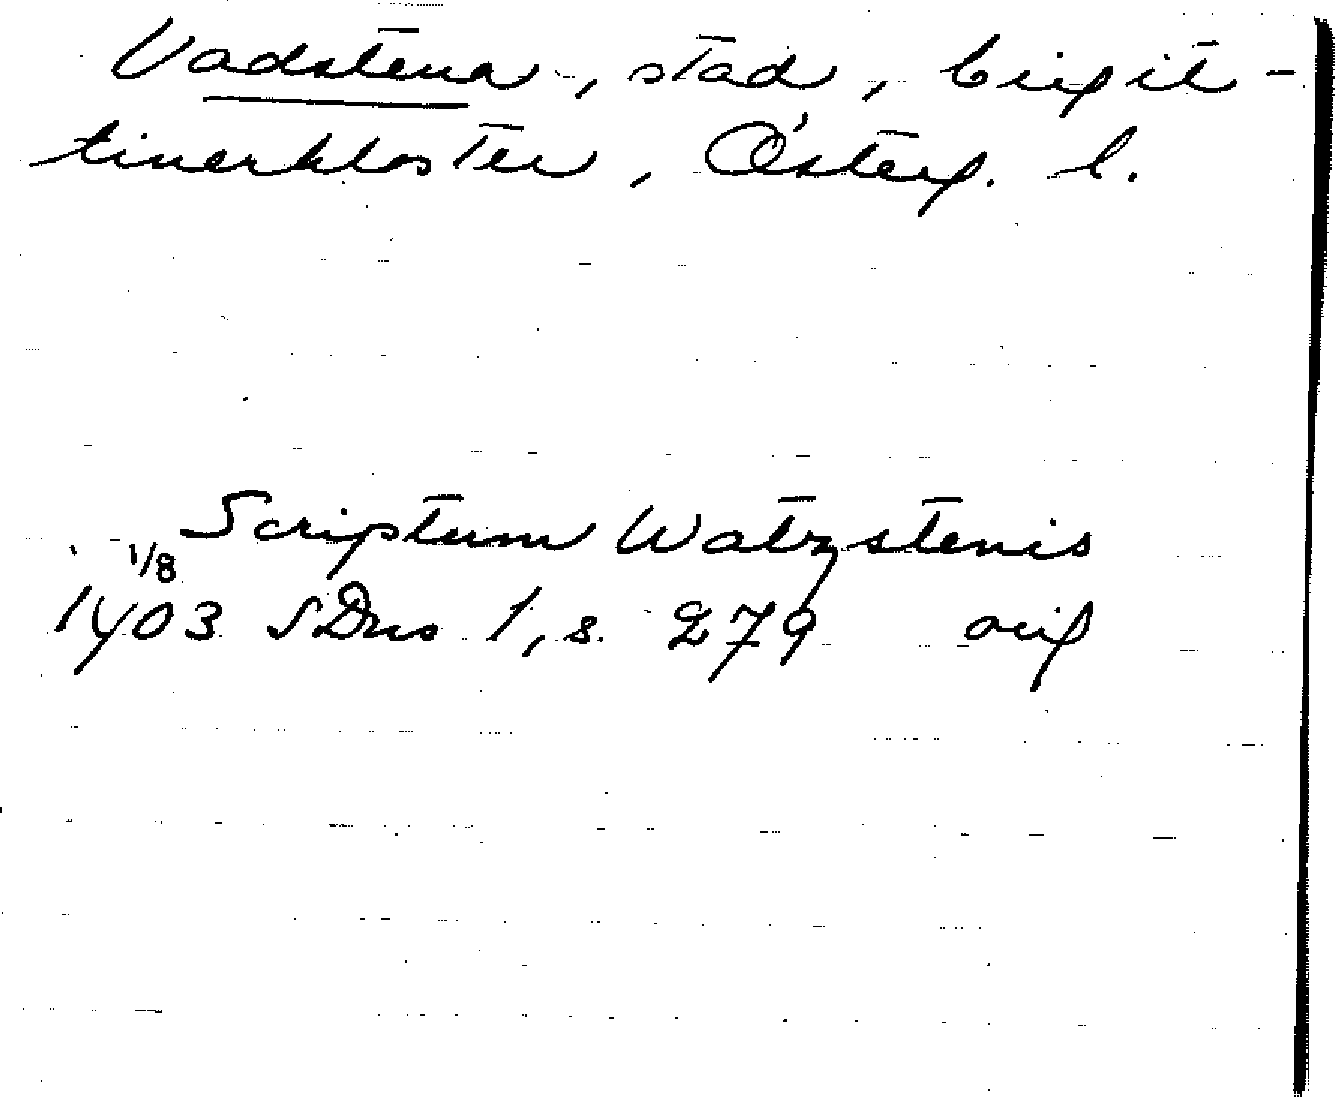 Vadstena, stad, birgit-
tinerkloster, Österg. l.
Scriptum Watzstenis
1/8
1403 SDns 1, s. 279 orig